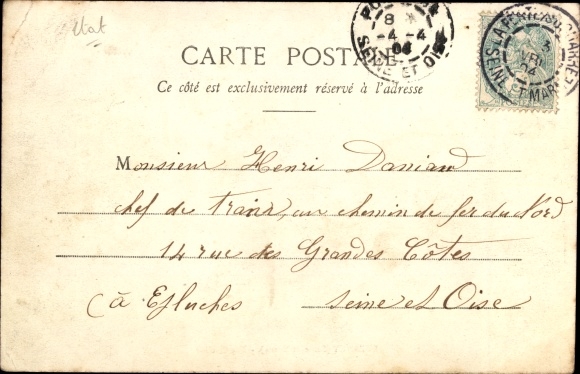 Etat
8
-4 -4
04
SEINE ET OISE
LA FERTÉ-SOUS-JOUARRE
SEINE ET MARNE
CARTE POSTALE
Ce côté est exclusivement réservé à l'adresse
Monsieur Henri Daniaud
chef de train, au chemin de fer du Nord
14 rue des Grandes Côtes
à Efluches Seine et Oise